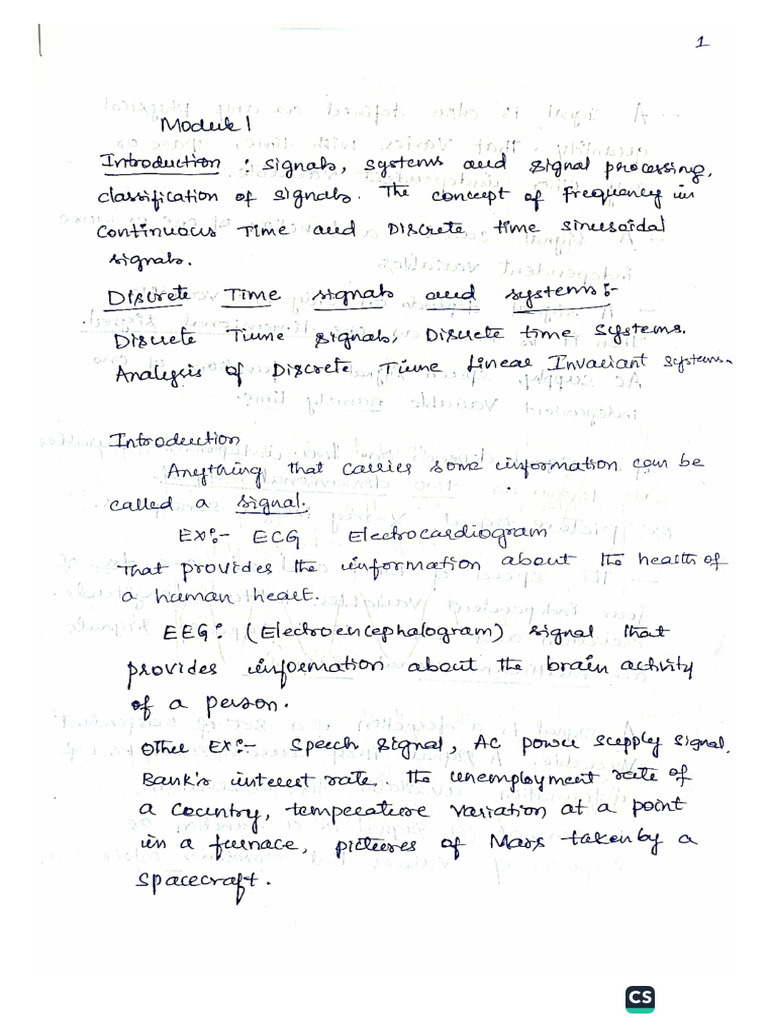 1
Module 1
Introduction : signals, systems and signal processing,
classification of signals. The concept of frequency in
continuous Time and Discrete time sinusoidal
signals.
Discrete Time signals and systems:-
Discrete Time signals, Discrete time systems.
Analysis of Discrete Time Linear Invariant systems.
Introduction
Anything that carries some information can be
called a signal.
Ex:- ECG Electrocardiogram
That provides the information about the health of
a human heart.
EEG: (Electroencephalogram) signal that
provides information about the brain activity
of a person.
Other Ex:- Speech signal, AC power supply signal,
Bank's interest rate. The unemployment rate of
a country, temperature variation at a point
in a furnace, pictures of Mars taken by a
spacecraft.
CS